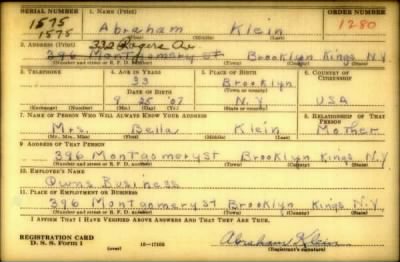 SERIAL NUMBER 1. NAME (Print) ORDER NUMBER
1575
1575 Abraham Klein 1280
2. ADDRESS (Print) 332 Rogers Av
396 Montgomery St Brooklyn Kings N.Y
(Number and street or R. F. D. number) (Town) (County) (State)
3. TELEPHONE 4. AGE IN YEARS 5. PLACE OF BIRTH 6. COUNTRY OF CITIZENSHIP
33 Brooklyn
DATE OF BIRTH (Town or county)
9 25 '07 N.Y USA
(Exchange) (Number) (Mo.) (Day) (Yr.) (State or country)
7. NAME OF PERSON WHO WILL ALWAYS KNOW YOUR ADDRESS 8. RELATIONSHIP OF THAT PERSON
Mrs. Bella Klein Mother
(Mr., Mrs., Miss) (First) (Middle) (Last)
9. ADDRESS OF THAT PERSON
396 Montgomery St Brooklyn Kings N.Y
(Number and street or R. F. D. number) (Town) (County) (State)
10. EMPLOYER'S NAME
Owns Business
11. PLACE OF EMPLOYMENT OR BUSINESS
396 Montgomery St Brooklyn Kings N.Y
(Number and street or R. F. D. number) (Town) (County) (State)
I AFFIRM THAT I HAVE VERIFIED ABOVE ANSWERS AND THAT THEY ARE TRUE.
REGISTRATION CARD
D. S. S. Form 1 (over) 16—17105 Abraham Klein
(Registrant's signature)